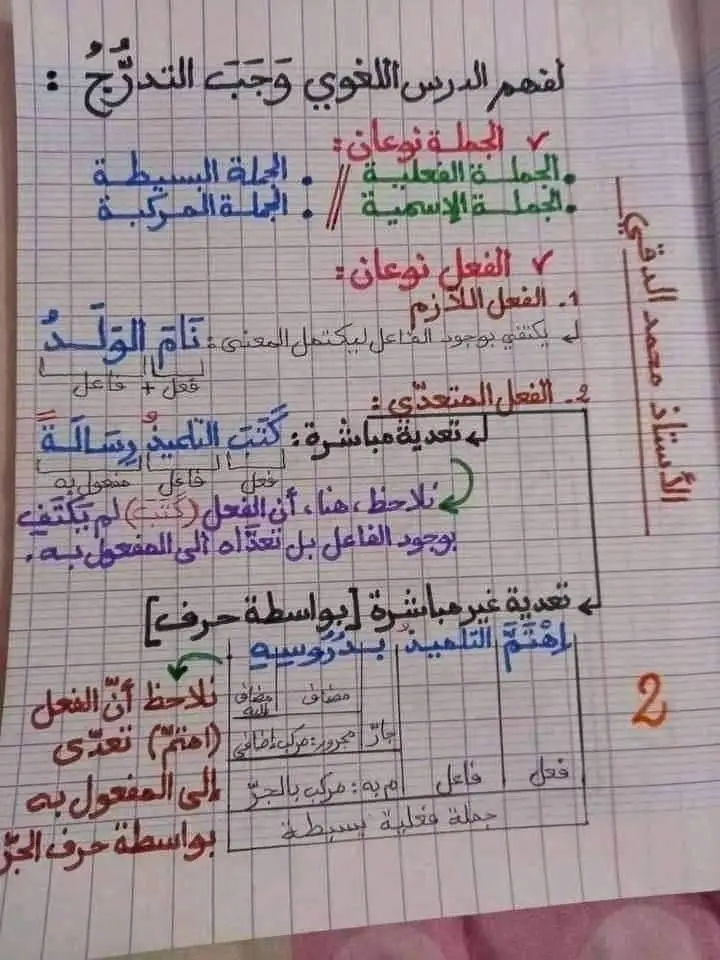 لفهم الدرس اللغوي وَجَبَ التدرُّجُ :
✓ الجملة نوعان:
• الجملة الفعلية // • الجملة البسيطة
• الجملة الإسمية // • الجملة المركبة
✓ الفعل نوعان:
1. الفعل اللازم
يكتفي بوجود الفاعل ليكتمل المعنى: نَامَ الوَلَدُ
فعل + فاعل
2. الفعل المتعدّي:
تعدية مباشرة: كَتَبَ التلميذُ رِسَالَةً
فعل فاعل مفعول به
نلاحظ، هنا، أن الفعل (كَتَبَ) لم يَكْتَفِ
بوجود الفاعل بل تعدَّاه الى المفعول به.
تعدية غير مباشرة [بواسطة حرف]
اِهْتَمَّ التلميذُ بِدُرُوسِهِ
مضاف مضاف إليه
جارّ مجرور: مركب إضافي
فعل فاعل م به: مركب بالجرّ
جملة فعلية بسيطة
نلاحظ أنّ الفعل
(اهتمّ) تعدّى
إلى المفعول به
بواسطة حرف الجرّ
الأستاذ محمد الدقي
2